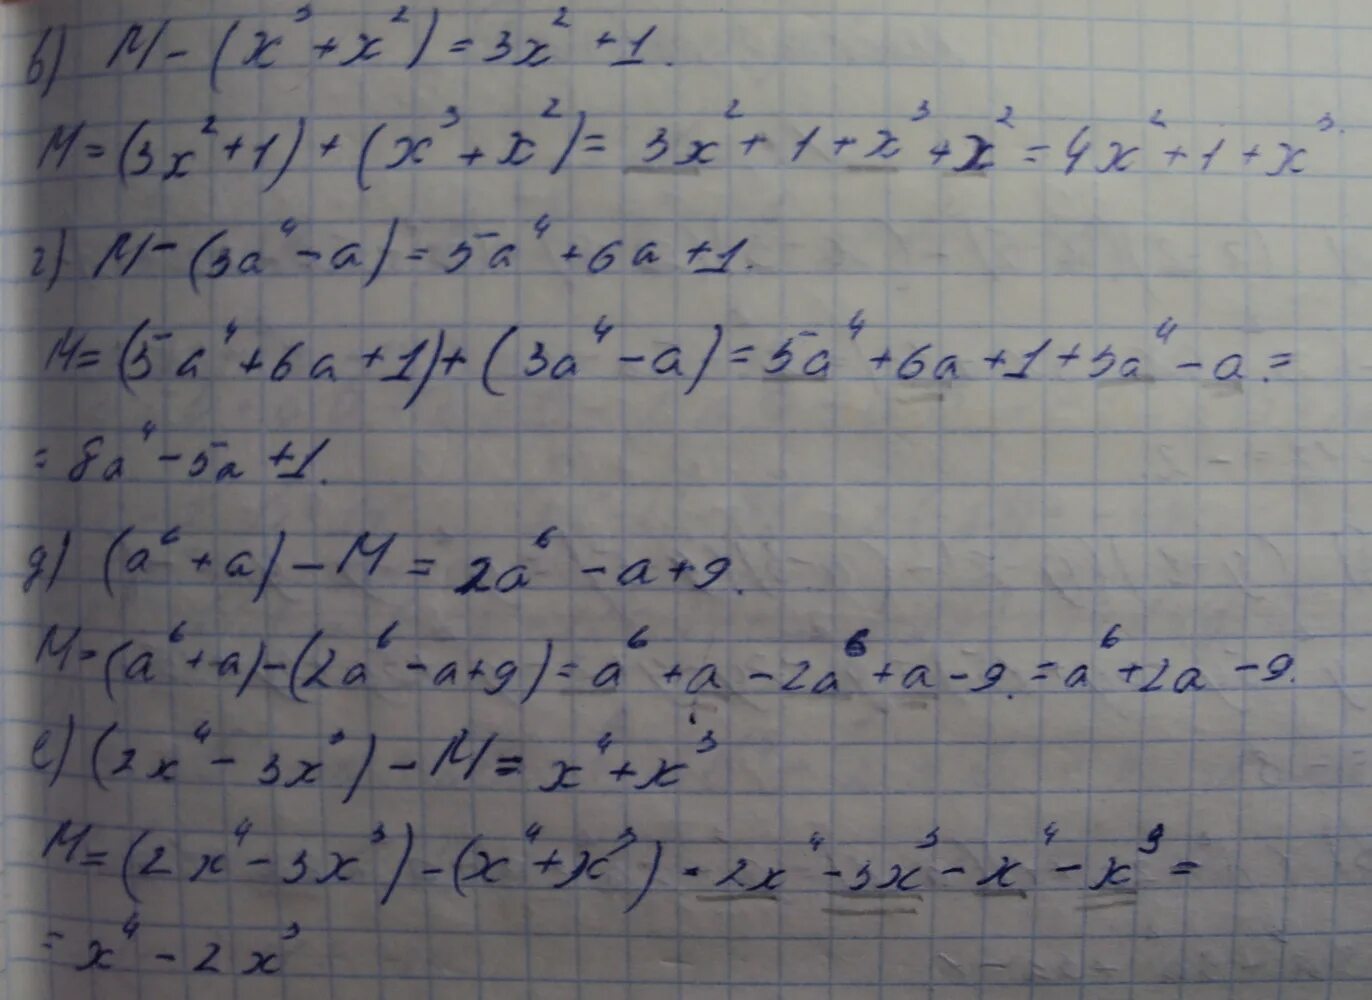 в) М - (x³ + x²) = 3x² + 1.
М = (3x² + 1) + (x³ + x²) = 3x² + 1 + x³ + x² = 4x² + 1 + x³.
г) М - (3a⁴ - a) = 5a⁴ + 6a + 1.
М = (5a⁴ + 6a + 1) + (3a⁴ - a) = 5a⁴ + 6a + 1 + 3a⁴ - a =
= 8a⁴ - 5a + 1.
д) (a⁶ + a) - М = 2a⁶ - a + 9.
М = (a⁶ + a) - (2a⁶ - a + 9) = a⁶ + a - 2a⁶ + a - 9. = a⁶ + 2a - 9.
е) (2x⁴ - 3x³) - М = x⁴ + x³
М = (2x⁴ - 3x³) - (x⁴ + x³) = 2x⁴ - 3x³ - x⁴ - x³ =
= x⁴ - 2x³